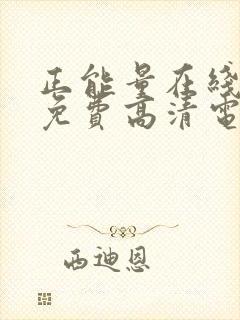 正能量在线
免費高清電
西迪恩